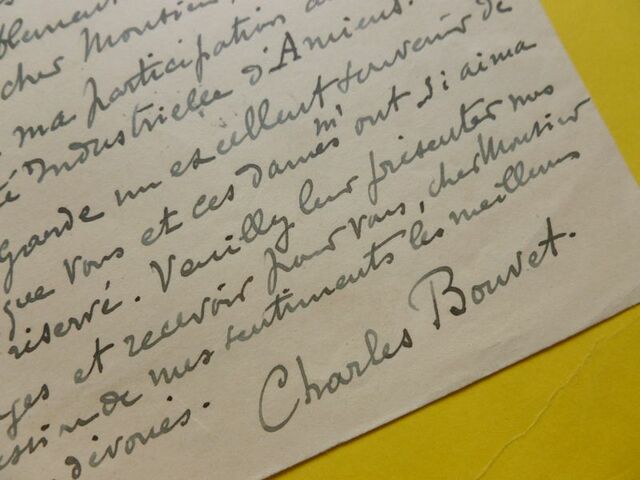 cher Monsieur,
ma participation à
té Industrielle d'Amiens.
garde un excellent souvenir de
que vous et ces dames m'ont si aima
réservé. Veuillez leur présenter mes
ges et recevoir pour vous, cher Monsieur
de mes sentiments les meilleurs
dévoués.
Charles Bouvet.